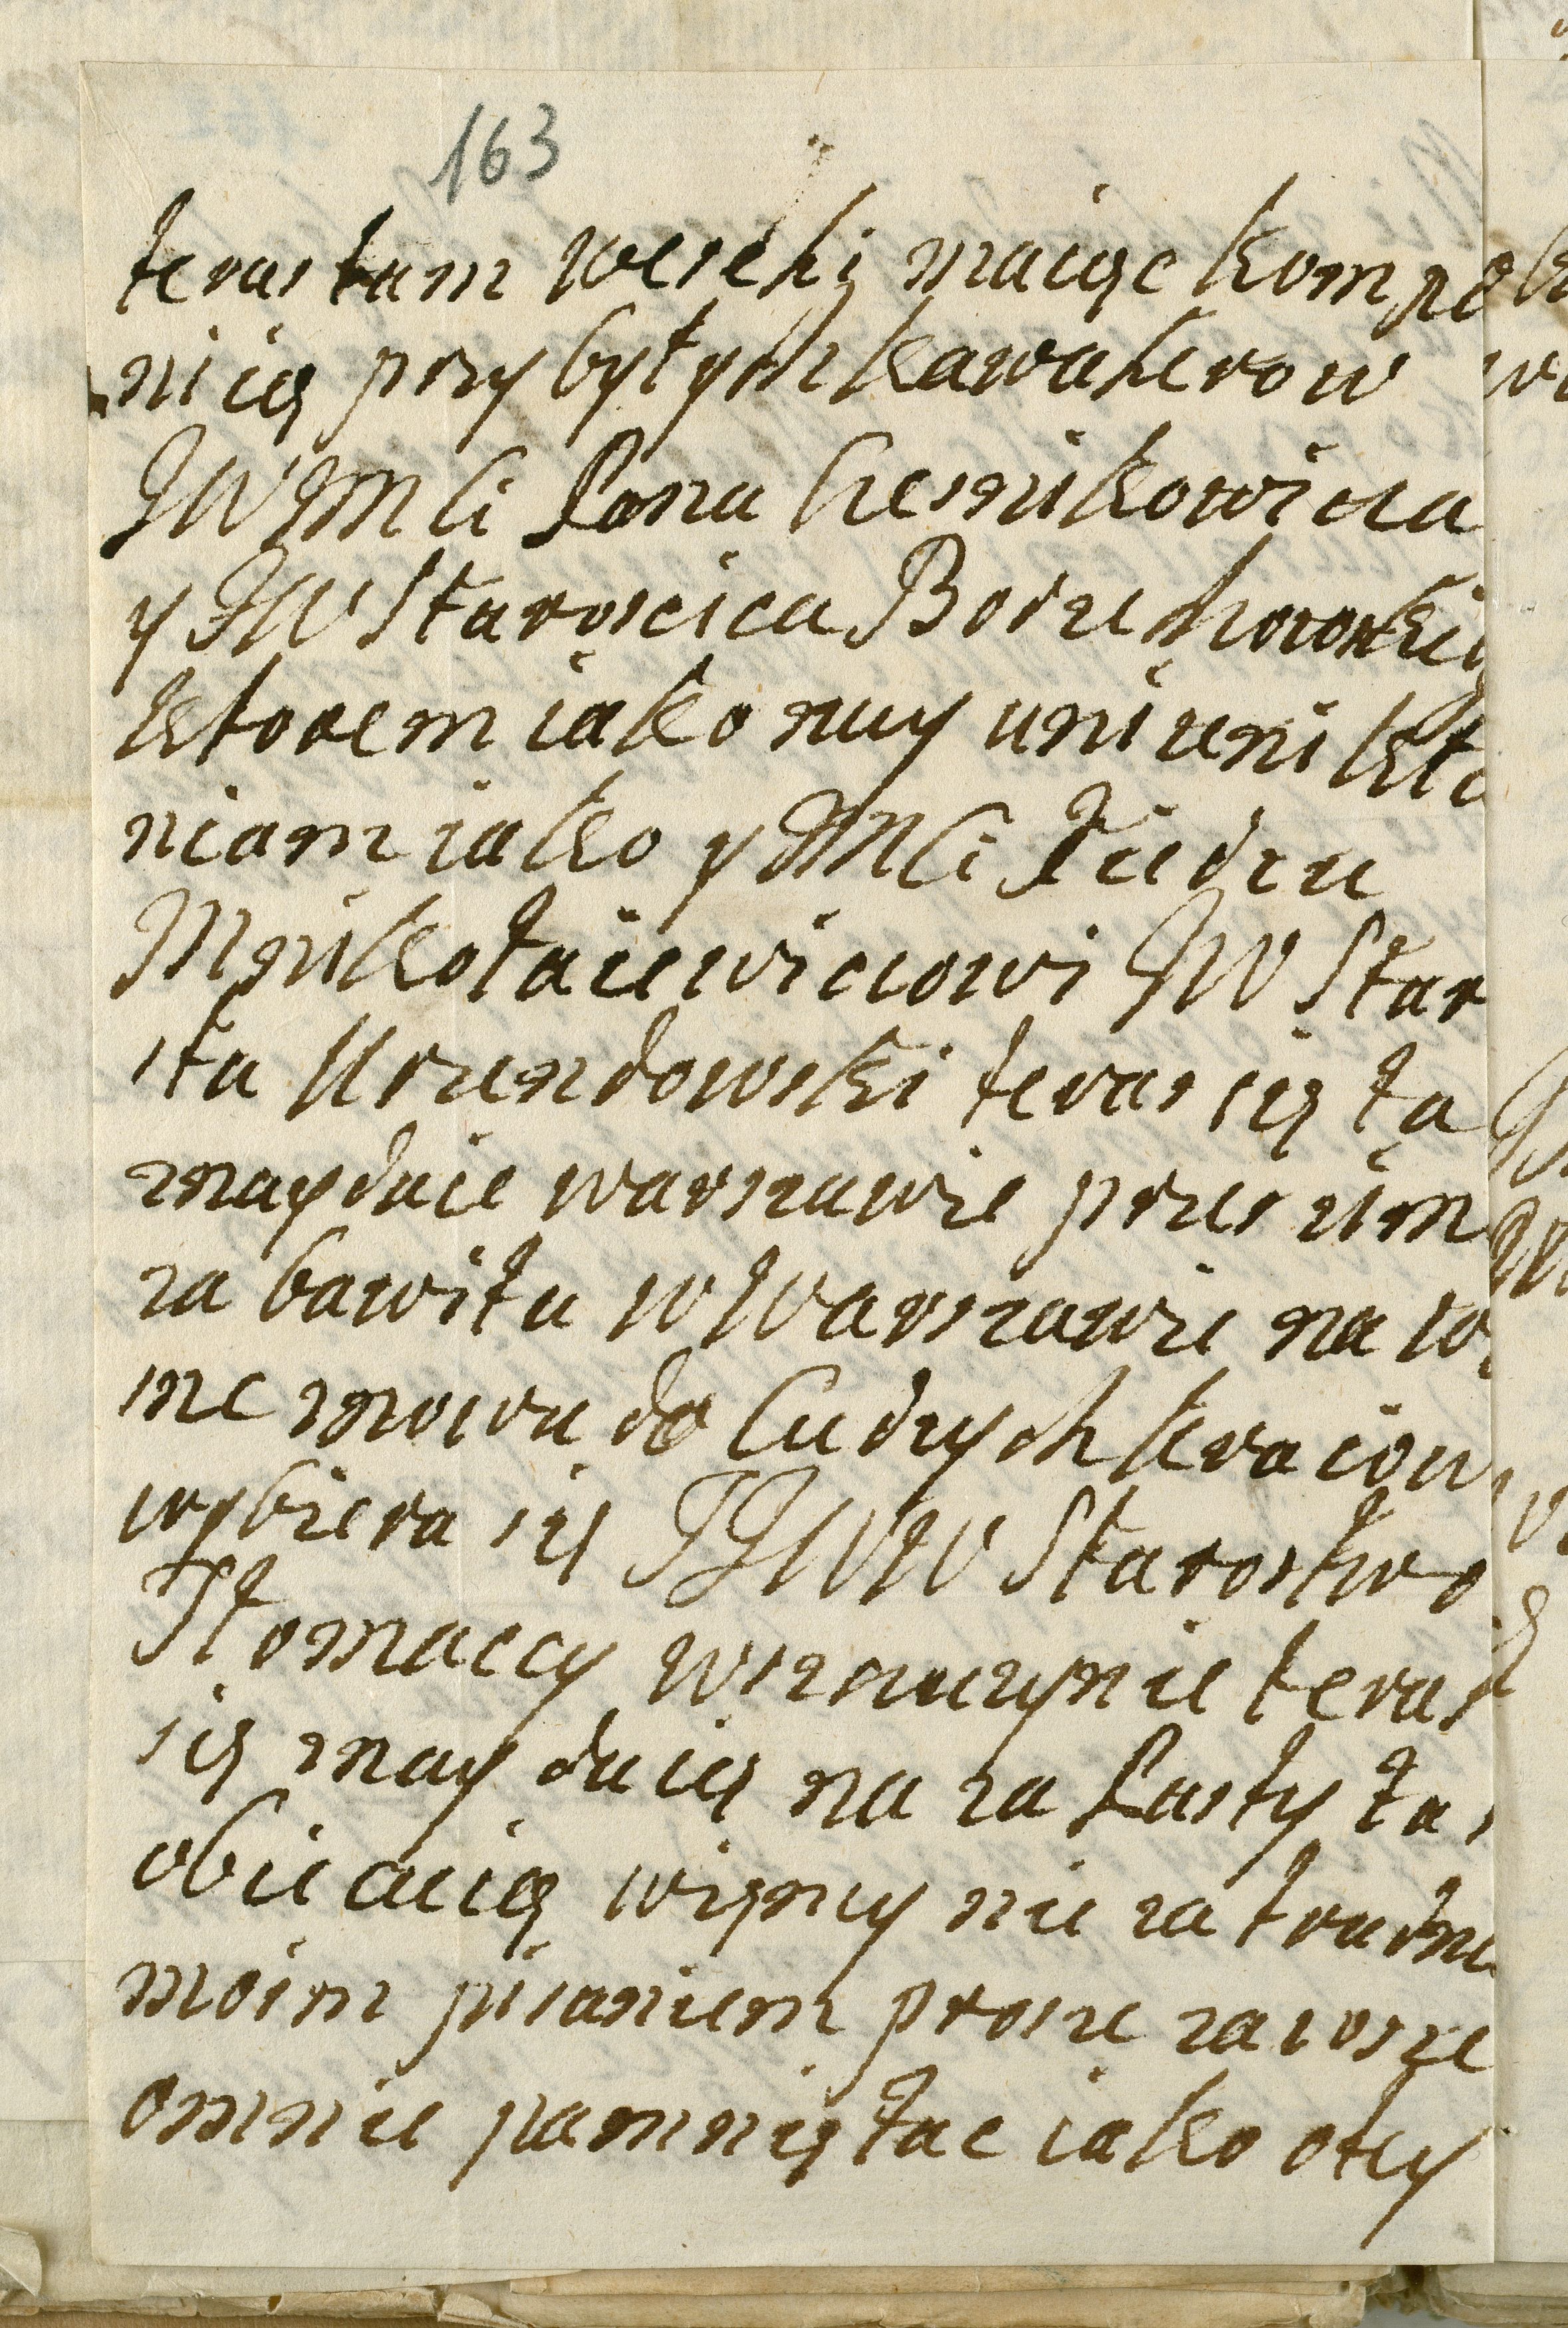 163
teras tam weselị maiąc kompa
nią przybyłych kawalerow
JWJMCi Pana Czesnikowicza
y JW Staroscica Borzechowski
ktorem iako nay unizeni kła
niam iako y JMCi Xiedzu
Mnikołaiewiczowi JW Star
sta Urzendowski teras się ta
znayduie warszawie przes zim
za bawiła w Warszawie na w
sne znowu do Cudzych kraiow
wybiera się JJWW Starostwo
Tłomaccy w sznuczynie teras
się znay duią na za Pusty ta
obiecuią więncy nie za trudni
moim pisaniem prosze zawsze
omnie pamniętac iako o tey